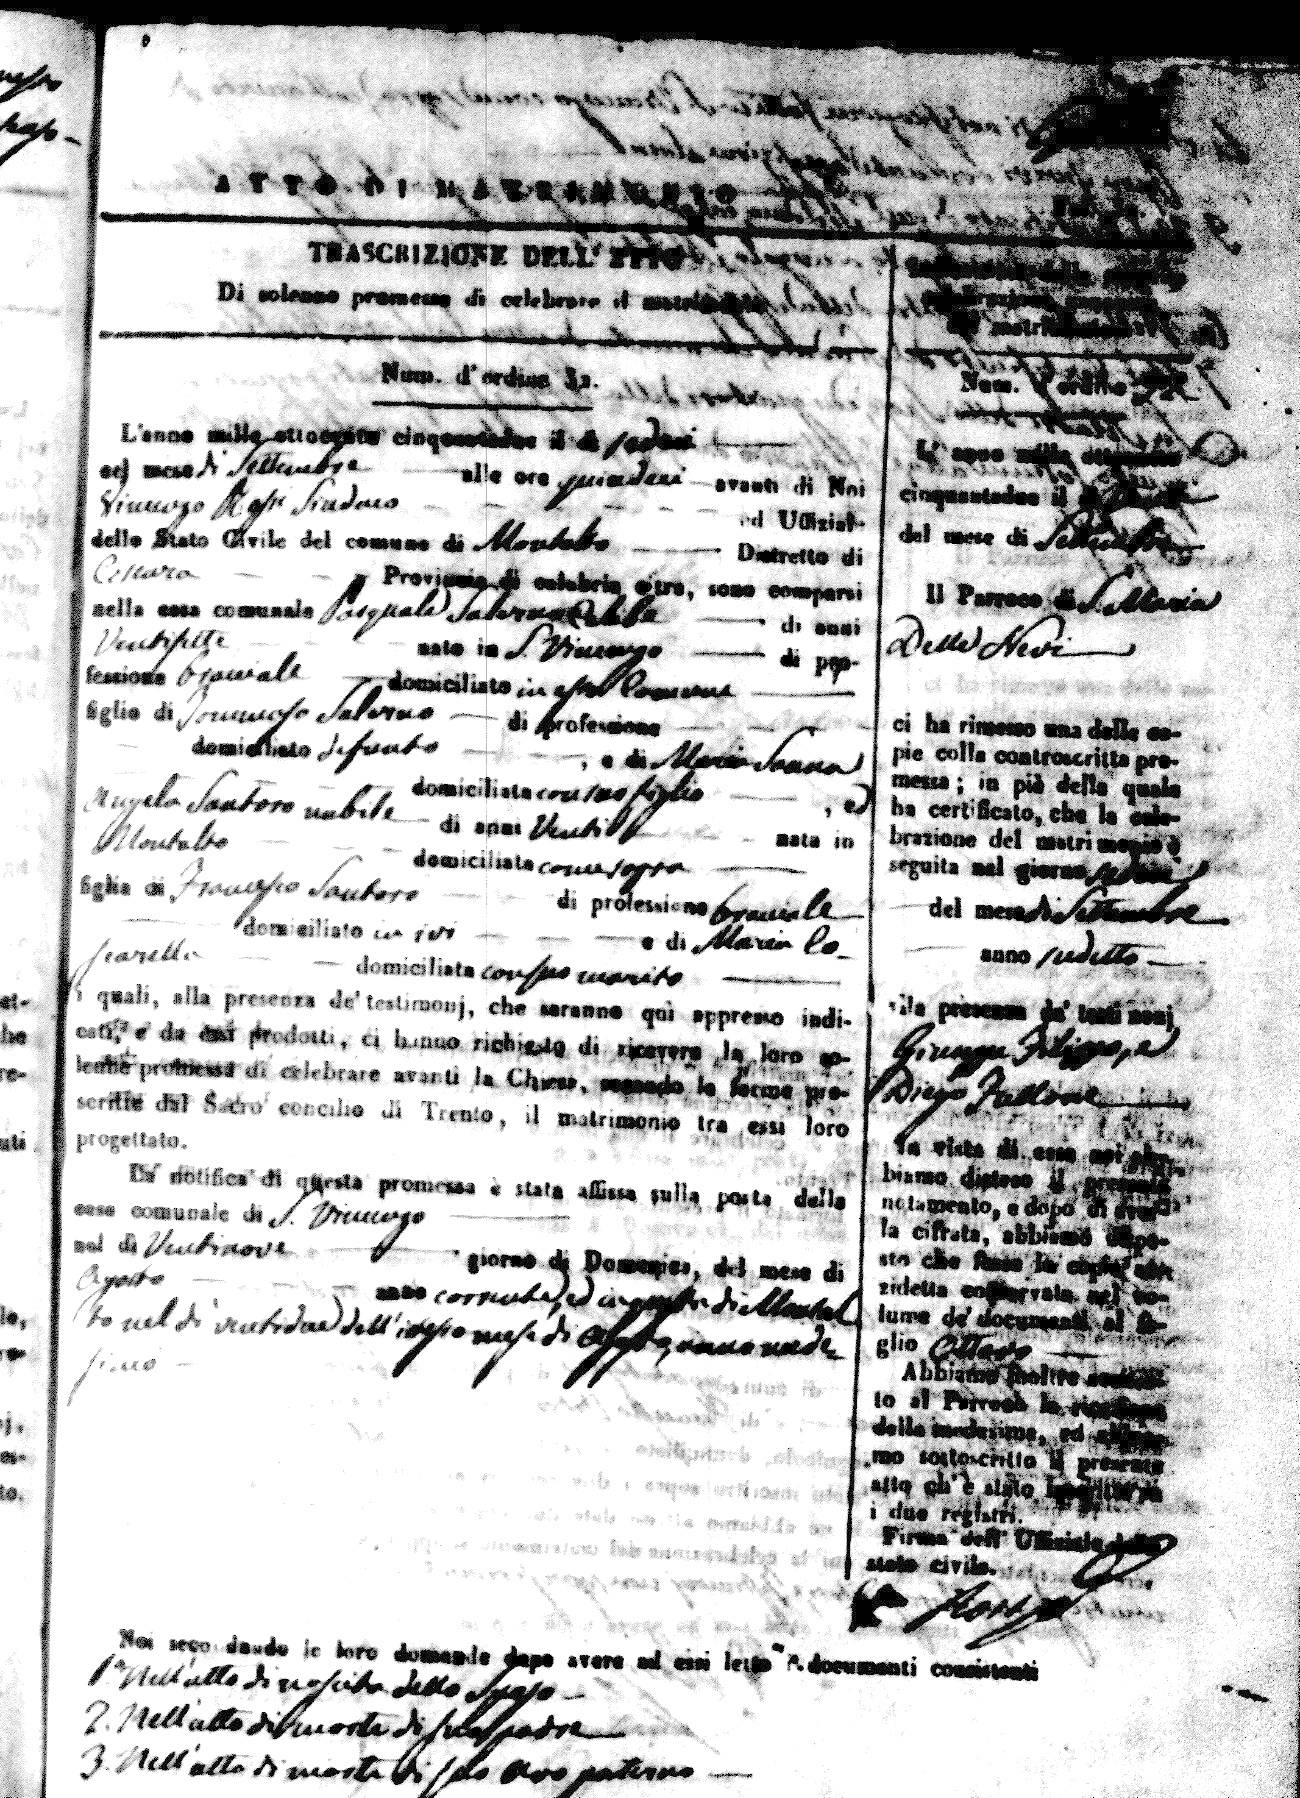 ATTO DI MATRIMONIO
TRASCRIZIONE DELL'ATTO
Di solenne promessa di celebrare il matrimonio
Num. d'ordine 32.
L'anno mille ottocento cinquantadue il dì sedeci
nel mese di Settembre alle ore quindeci avanti di Noi
Vincenzo Rossi Sindaco ed Uffizial-
dello Stato Civile del comune di Montalto Distretto di
Cosenza Provincia di calabria citra, sono comparsi
nella casa comunale Pasquale Salerno Celibe di anni
Ventisette nato in S. Vincenzo di pro-
fessione bracciale domiciliato in esso Comune
figlio di Francesco Salerno di professione
domiciliato defunto , e di Maria
domiciliata con suo figlio , ed
Angela Santoro nubile di anni Venti nata in
Montalto domiciliata come sopra
figlia di Francesco Santoro di professione bracciale
domiciliato in ivi e di Maria Co-
scarella domiciliata con suo marito
i quali, alla presenza de' testimonj, che saranno quì appresso indi-
cati, e da essi prodotti, ci hanno richiesto di ricevere la loro so-
lenne promessa di celebrare avanti la Chiesa, secondo le forme pre-
scritte dal Sacro concilio di Trento, il matrimonio tra essi loro
progettato.
La notifica di questa promessa è stata affissa sulla porta della
casa comunale di S. Vincenzo
nel dì Ventinove giorno di Domenica, del mese di
Agosto anno corrente, ed in questa di Montal
to nel dì ventidue dell'istesso mese di Agosto, anno mede-
simo
Noi secondando le loro domande dopo avere ad essi letto i documenti consistenti
1° Nell'atto di nascita dello Sposo
2. Nell'atto di morte di suo padre
3. Nell'atto di morte di suo avo paterno
celebrazione
del matrimonio
Num. d'ordine
L'anno mille ottocento
cinquantadue il dì
del mese di Settembre
Il Parroco di S. Maria
Delle Nevi
ci ha rimesso una delle co-
pie colla controscritta pro-
messa; in piè della quale
ha certificato, che la cele-
brazione del matrimonio è
seguita nel giorno sedeci
del mese di Settembre
anno sudetto
alla presenza de' testimonj
Giuseppe Filippo, e
Diego Fallone
In vista di essa noi ab-
biamo disteso il presente
notamento, e dopo di aver-
la cifrata, abbiamo dispo-
sto che fosse la copia an-
zidetta conservata nel vo-
lume de' documenti al fo-
glio Ottavo
Abbiamo inoltre accusa-
to al Parroco la ricezione
della medesima, ed abbia-
mo sottoscritto il presente
atto ch'è stato inscritto su
i due registri.
Firma dell' Uffiziale dello
stato civile.
Rossi